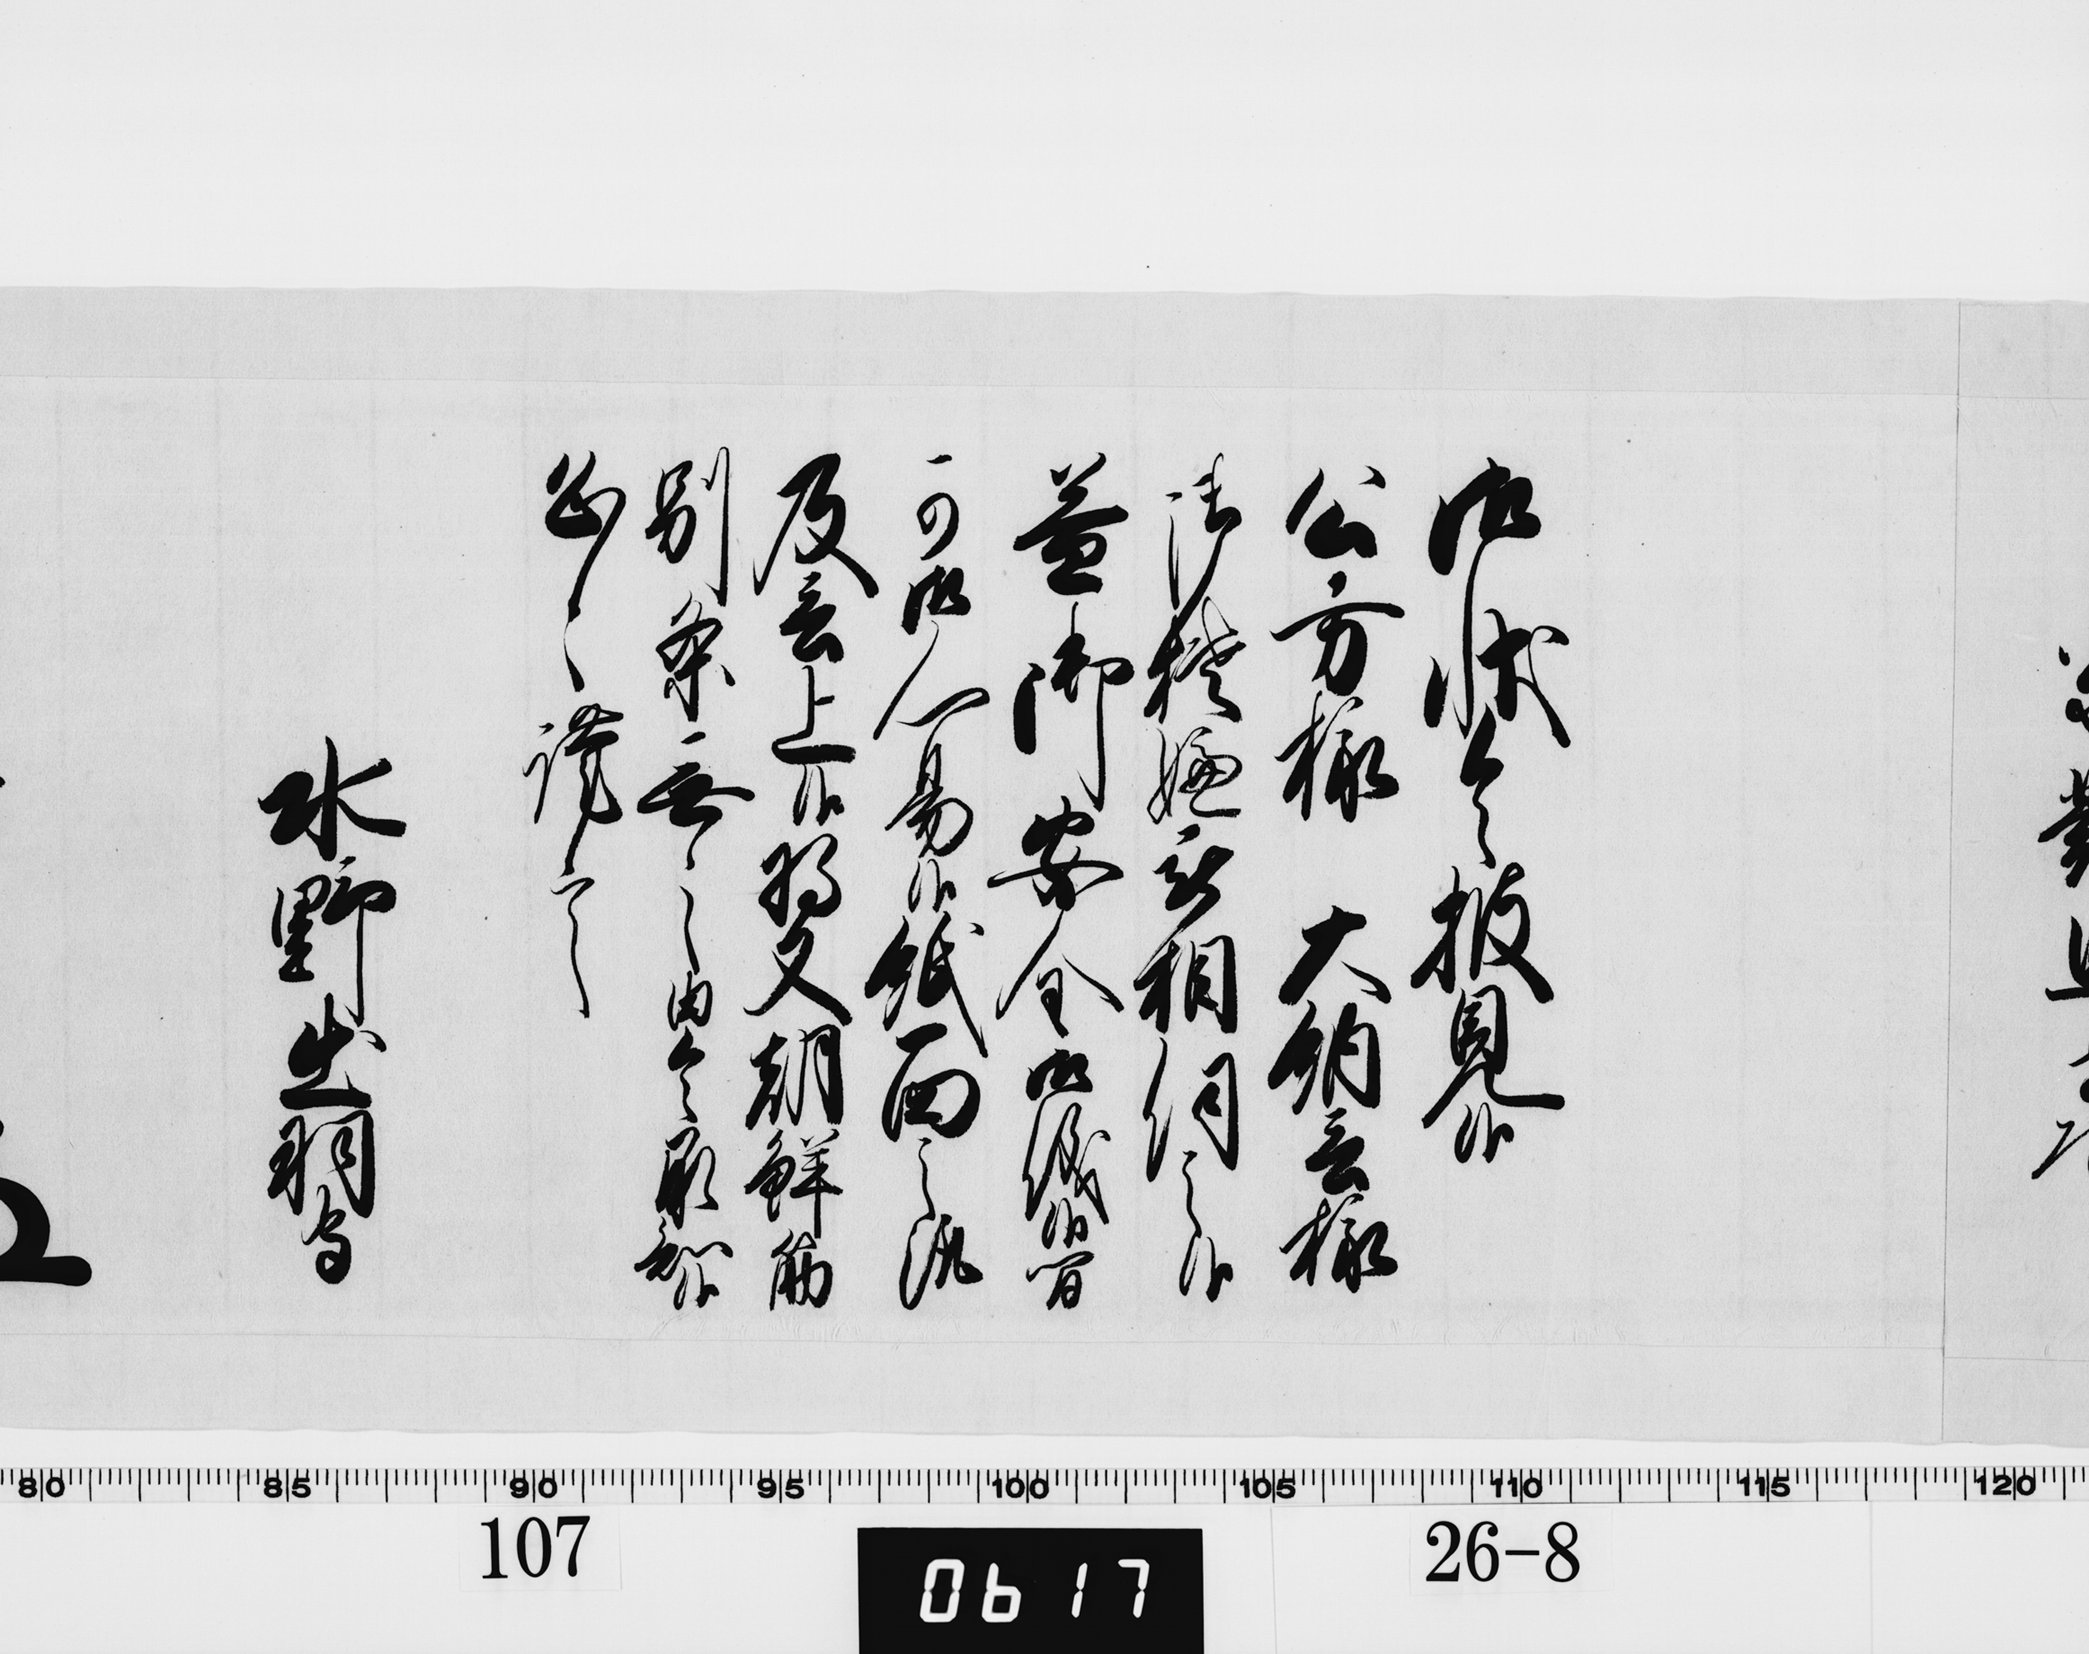 御状令披見候
公方様 大納言様
御機嫌被相伺之候
益御安全御儀候間
可御心易候紙面之趣
及言上候将又朝鮮筋
別条無之由令承知候
恐々謹言
水野出羽守
80 85 90 95 100 105 110 115 120
107
0617
26-8